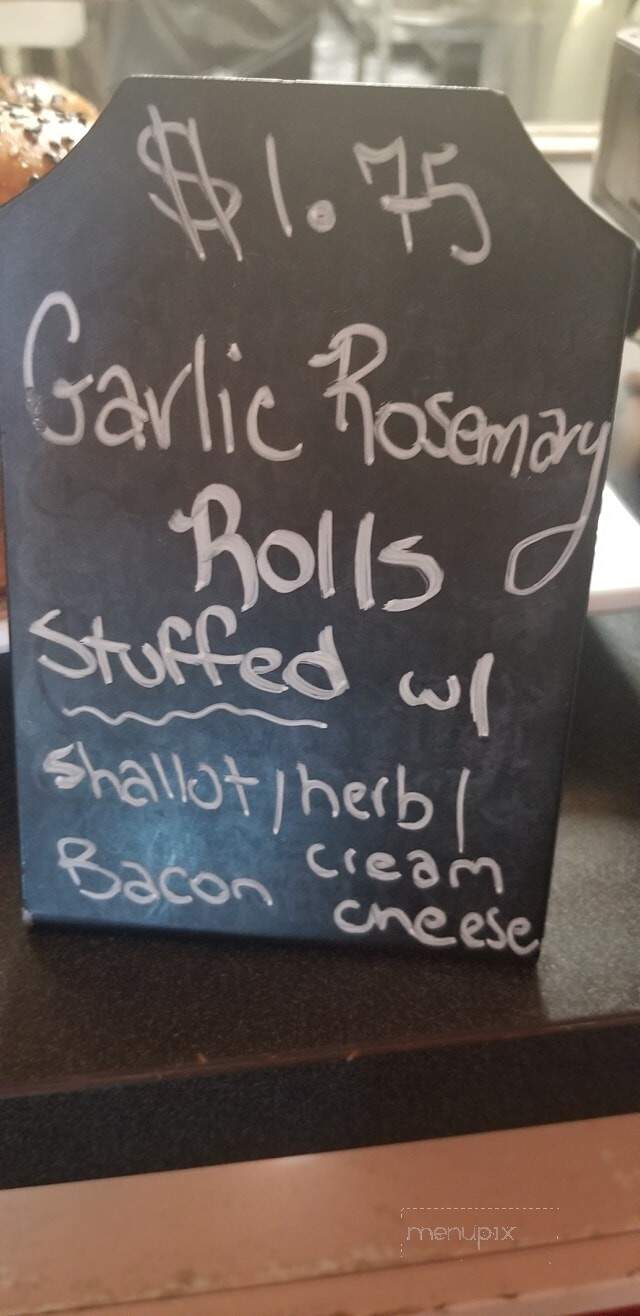 $1.75
Garlic Rosemary
Rolls
Stuffed w/
shallot/herb/
Bacon cream
cheese
menupix